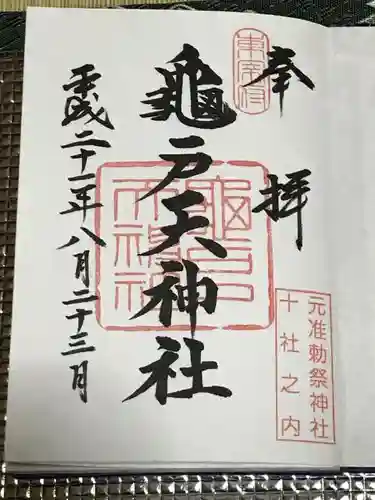 奉拝
東宰府
元准勅祭神社
十社之内
龜戸天神社
平成二十一年八月二十三日